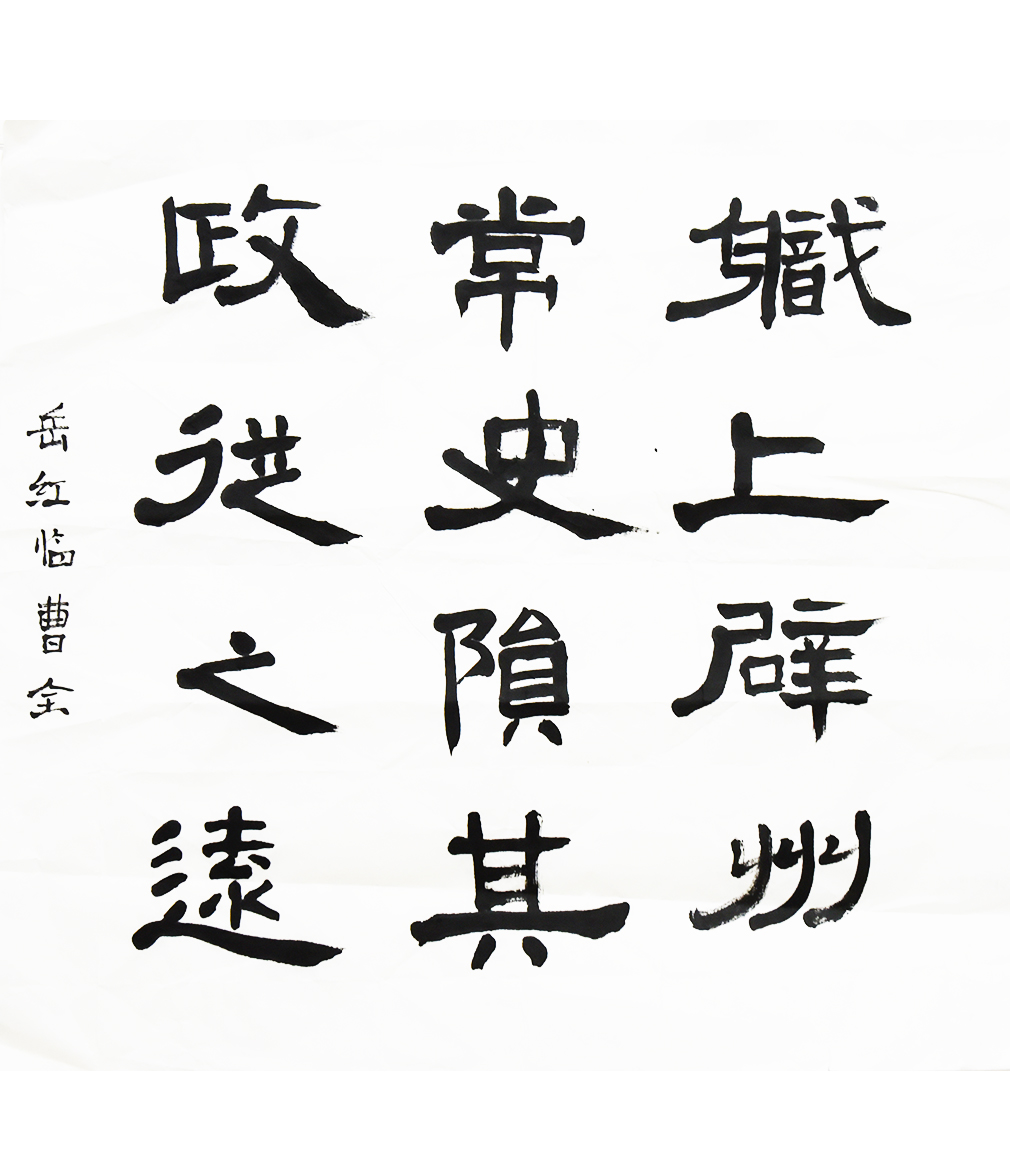 職上辟州
常史隕其
政從之遠
岳红临曹全